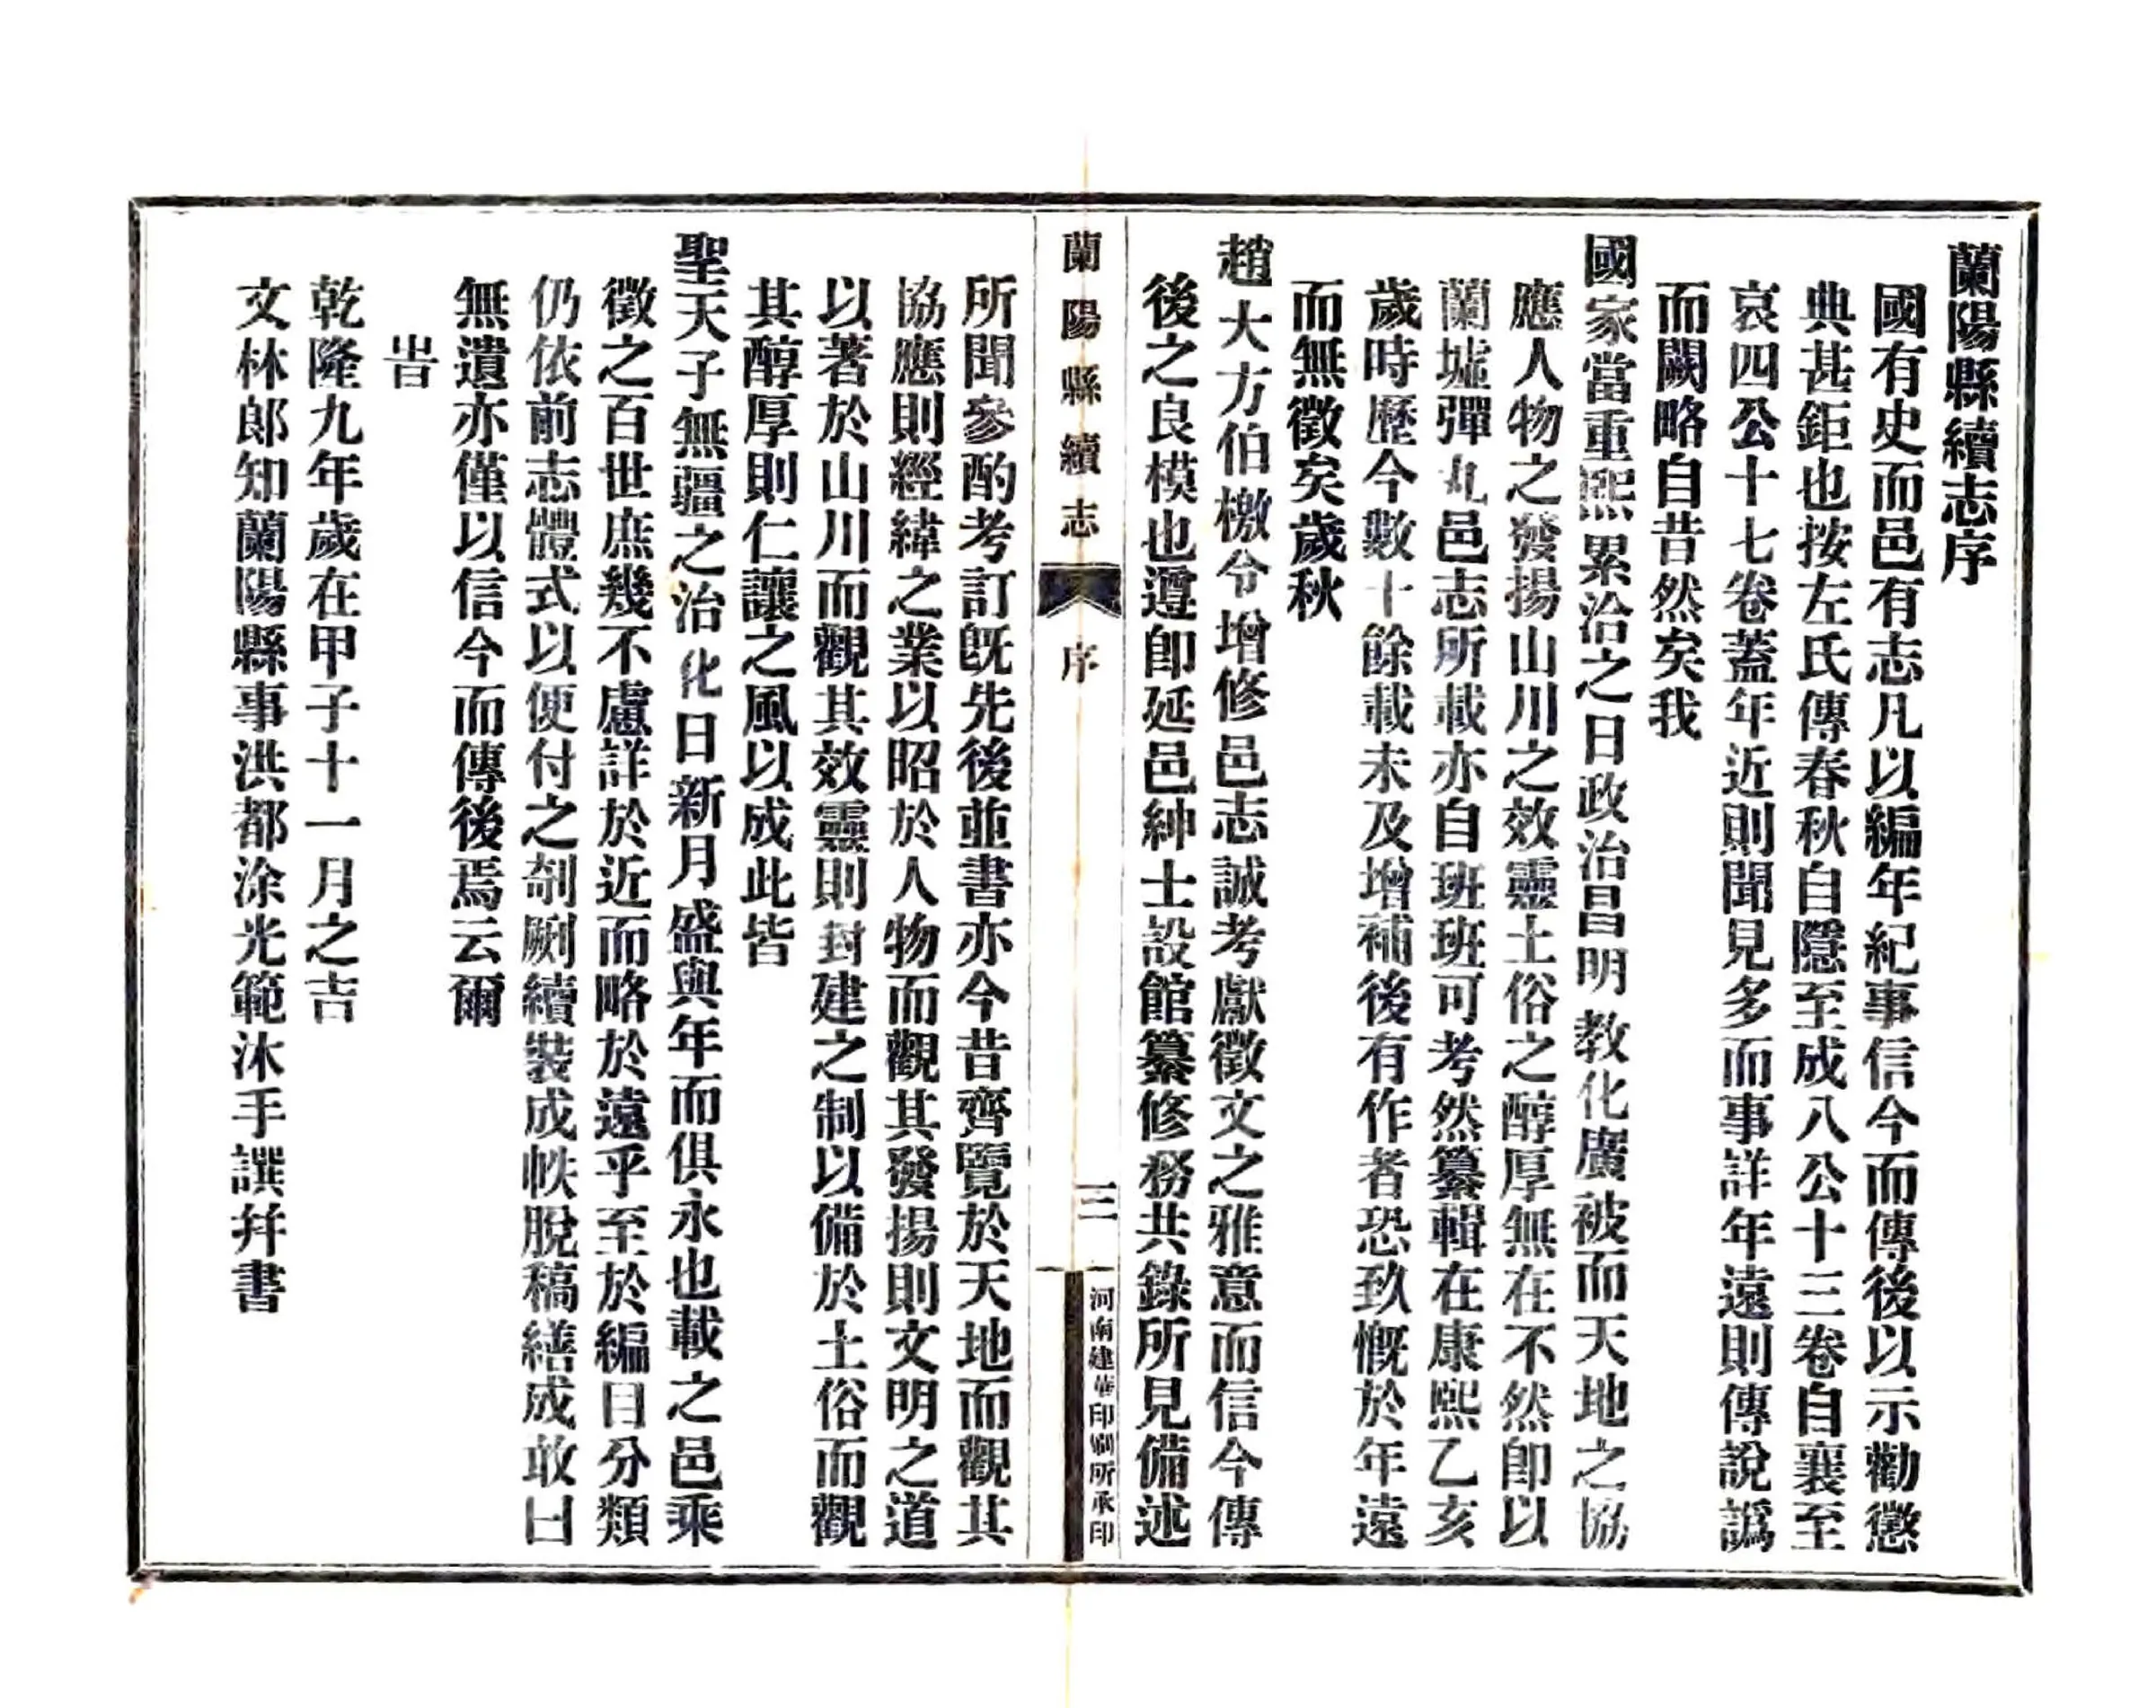 蘭陽縣續志序
國有史而邑有志凡以編年紀事信今而傳後以示勸懲
典甚鉅也按左氏傳春秋自隱至成八公十三卷自襄至
哀四公十七卷蓋年近則聞見多而事詳年遠則傳說譌
而闕略自昔然矣我
國家當重熙累洽之日政治昌明教化廣被而天地之協
應人物之發揚山川之效靈土俗之醇厚無在不然卽以
蘭墟彈丸邑志所載亦自班班可考然纂輯在康熙乙亥
歲時歷今數十餘載未及增補後有作者恐致慨於年遠
而無徵矣歲秋
趙大方伯檄令增修邑志誠考獻徵文之雅意而信今傳
後之良模也遵卽延邑紳士設館纂修務共錄所見備述
蘭陽縣續志
序
三
河南建華印刷所承印
所聞參酌考訂旣先後並書亦今昔齊覽於天地而觀其
協應則經緯之業以昭於人物而觀其發揚則文明之道
以著於山川而觀其效靈則封建之制以備於土俗而觀
其醇厚則仁讓之風以成此皆
聖天子無疆之治化日新月盛與年而俱永也載之邑乘
徵之百世庶幾不慮詳於近而略於遠乎至於編目分類
仍依前志體式以便付之剞劂續裝成帙脫稿繕成敢曰
無遺亦僅以信今而傳後焉云爾
旹
乾隆九年歲在甲子十一月之吉
文林郞知蘭陽縣事洪都涂光範沐手譔幷書